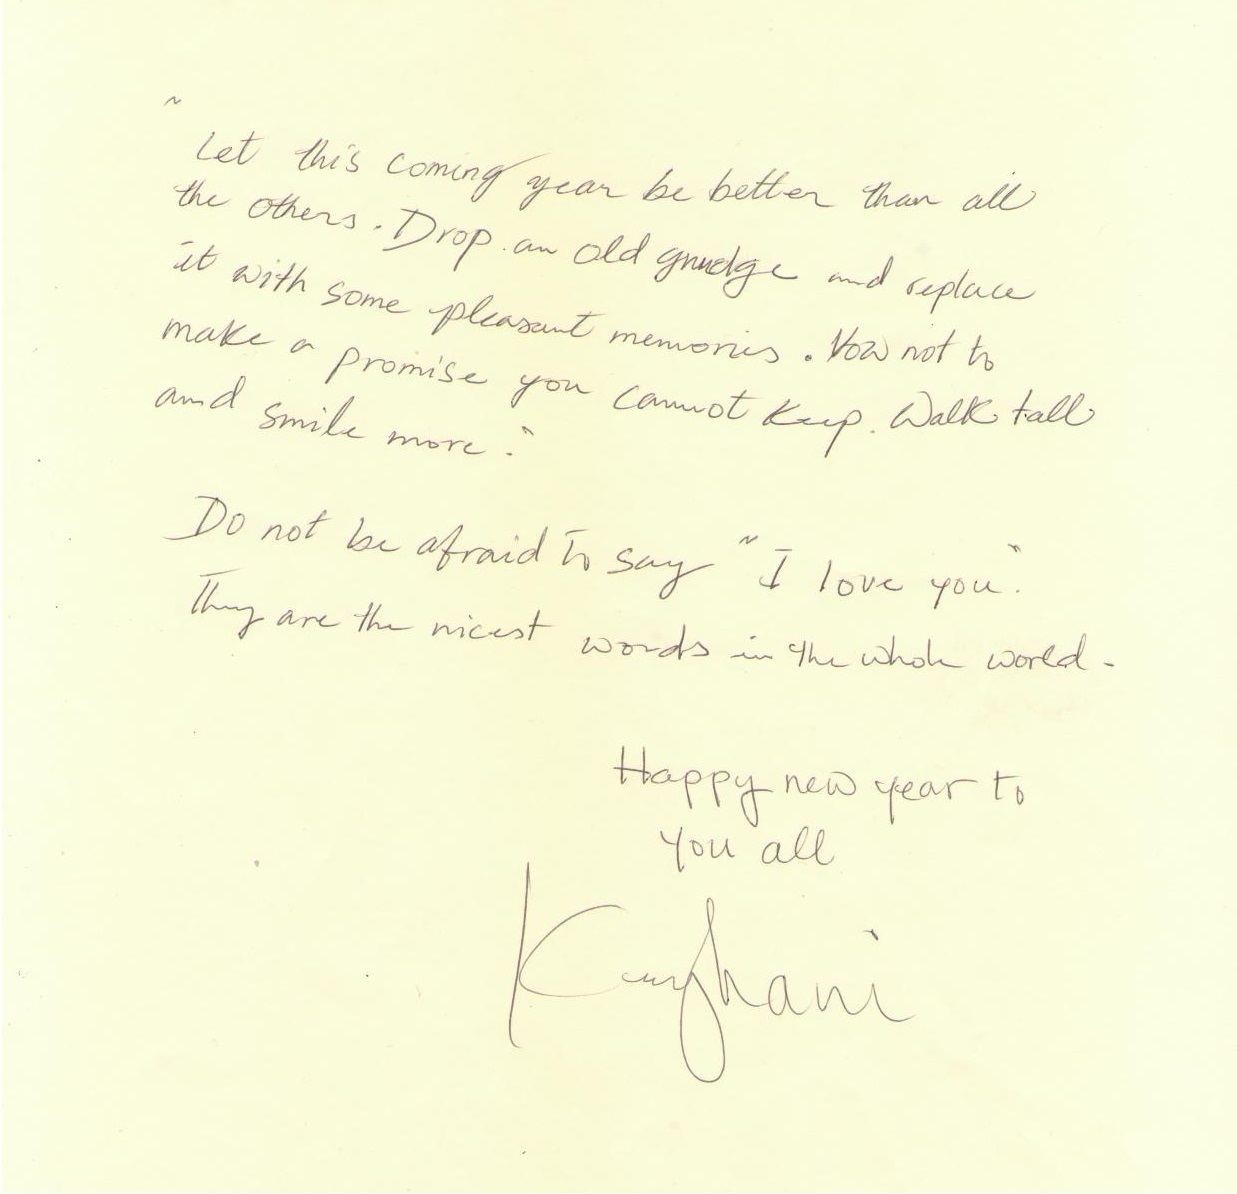 "Let this coming year be better than all
the others. Drop an old grudge and replace
it with some pleasant memories. Vow not to
make a promise you cannot keep. Walk tall
and smile more."
Do not be afraid to say "I love you".
They are the nicest words in the whole world.
Happy new year to
you all